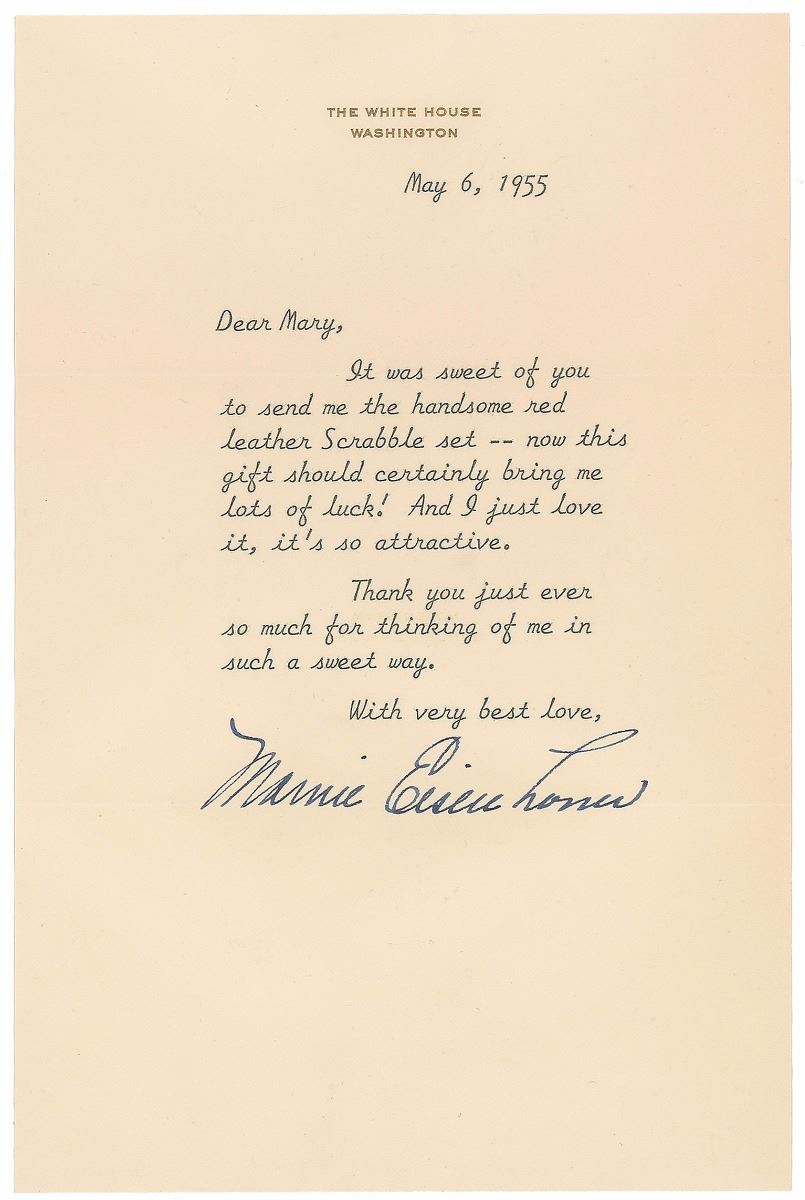 THE WHITE HOUSE
WASHINGTON
May 6, 1955
Dear Mary,
It was sweet of you
to send me the handsome red
leather Scrabble set -- now this
gift should certainly bring me
lots of luck! And I just love
it, it's so attractive.
Thank you just ever
so much for thinking of me in
such a sweet way.
With very best love,
Mamie Eisenhower